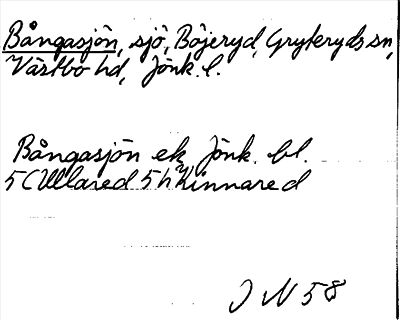 Bångasjön, sjö, Böjeryd, Gryteryds sn,
Västbo hd, Jönk. l.
Bångasjön ek. Jönk. bl.
5 C Ullared 5 h Kinnared
J N 58